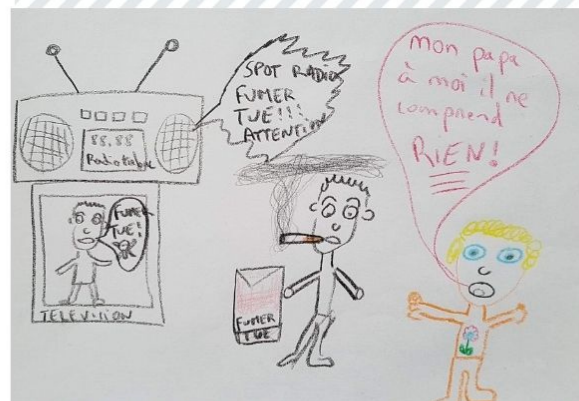 SPOT RADIO
FUMER
TUE!!!
ATTENTION
88.88
FUMER
TUE!
TELEVISION
FUMER
TUE
mon papa
à moi il ne
comprend
RIEN!